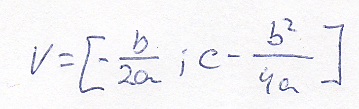 V = [-b/2a ; c - b²/4a]